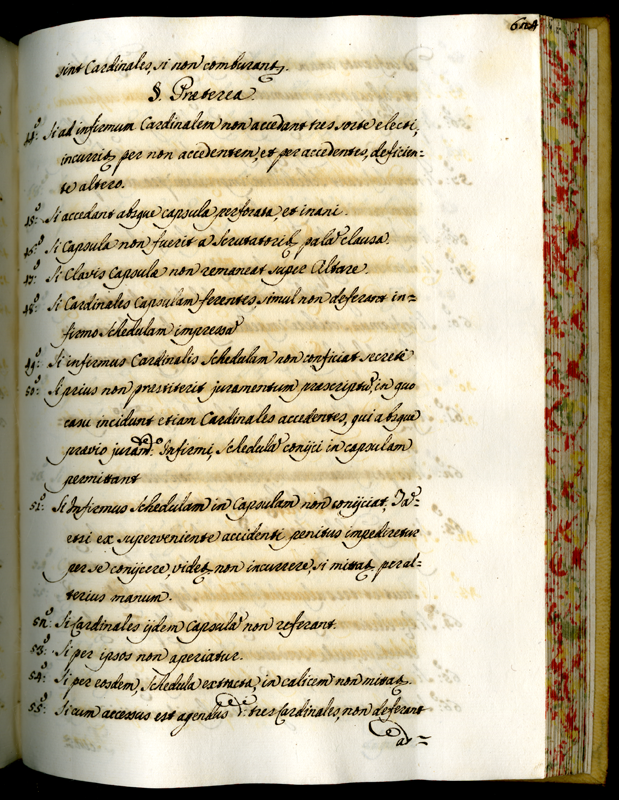 624
sint Cardinales, si non comburantꝫ.
§. Præterea.
44.º Si ad infirmum Cardinalem non accedant tres sorte electi,
incurritꝫ per non accedentem, et per accedentes, deficien=
te altero.
45.º Si accedant absque capsula perforata, et inani.
46.º Si Capsula non fuerit a Scrutatoribꝫ palã clausa.
47.º Si Clavis Capsulæ non remaneat super Altare.
48.º Si Cardinales Capsulam ferentes, simul non deferant in=
firmo Schedulam impressã
49.º Si infirmus Cardinalis Schedulam non conficiat secreté
50.º Si prius non præstiterit juramentum præscriptũ, in quo
casu incidunt etiam Cardinales accedentes, qui absque
prævio juramto. Infirmi, Schedulã conijci in capsulam
permittant
51.º Si Infirmus Schedulam in Capsulam non conijciat, Tã=
etsi ex superveniente accidenti penitus impediretur
per se conijcere, videtꝫ non incurrere, si mittatꝫ per al=
terius manum.
52.º Si Cardinales ijdem Capsulã non referant.
53.º Si per ipsos non aperiatur.
54.º Si per eosdem, Schedula extracta, in calicem non mittatꝫ.
55.º Si cum accessus est agendus tres Cardinales, non deferant